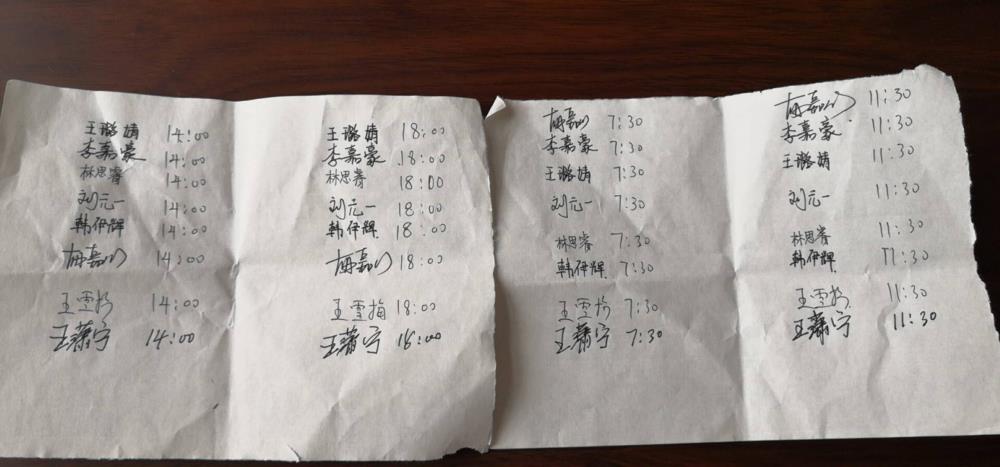 王璐婧 14:00
李嘉豪 14:00
林思睿 14:00
刘元一 14:00
韩伊辉 14:00
嘉 14:00
王雪梅 14:00
王萧宁 14:00
王璐婧 18:00
李嘉豪 18:00
林思睿 18:00
刘元一 18:00
韩伊辉 18:00
嘉 18:00
王雪梅 18:00
王萧宁 18:00
嘉 7:30
李嘉豪 7:30
王璐婧 7:30
刘元一 7:30
林思睿 7:30
韩伊辉 7:30
王雪梅 7:30
王萧宁 7:30
嘉 11:30
李嘉豪 11:30
王璐婧 11:30
刘元一 11:30
林思睿 11:30
韩伊辉 11:30
王雪梅 11:30
王萧宁 11:30